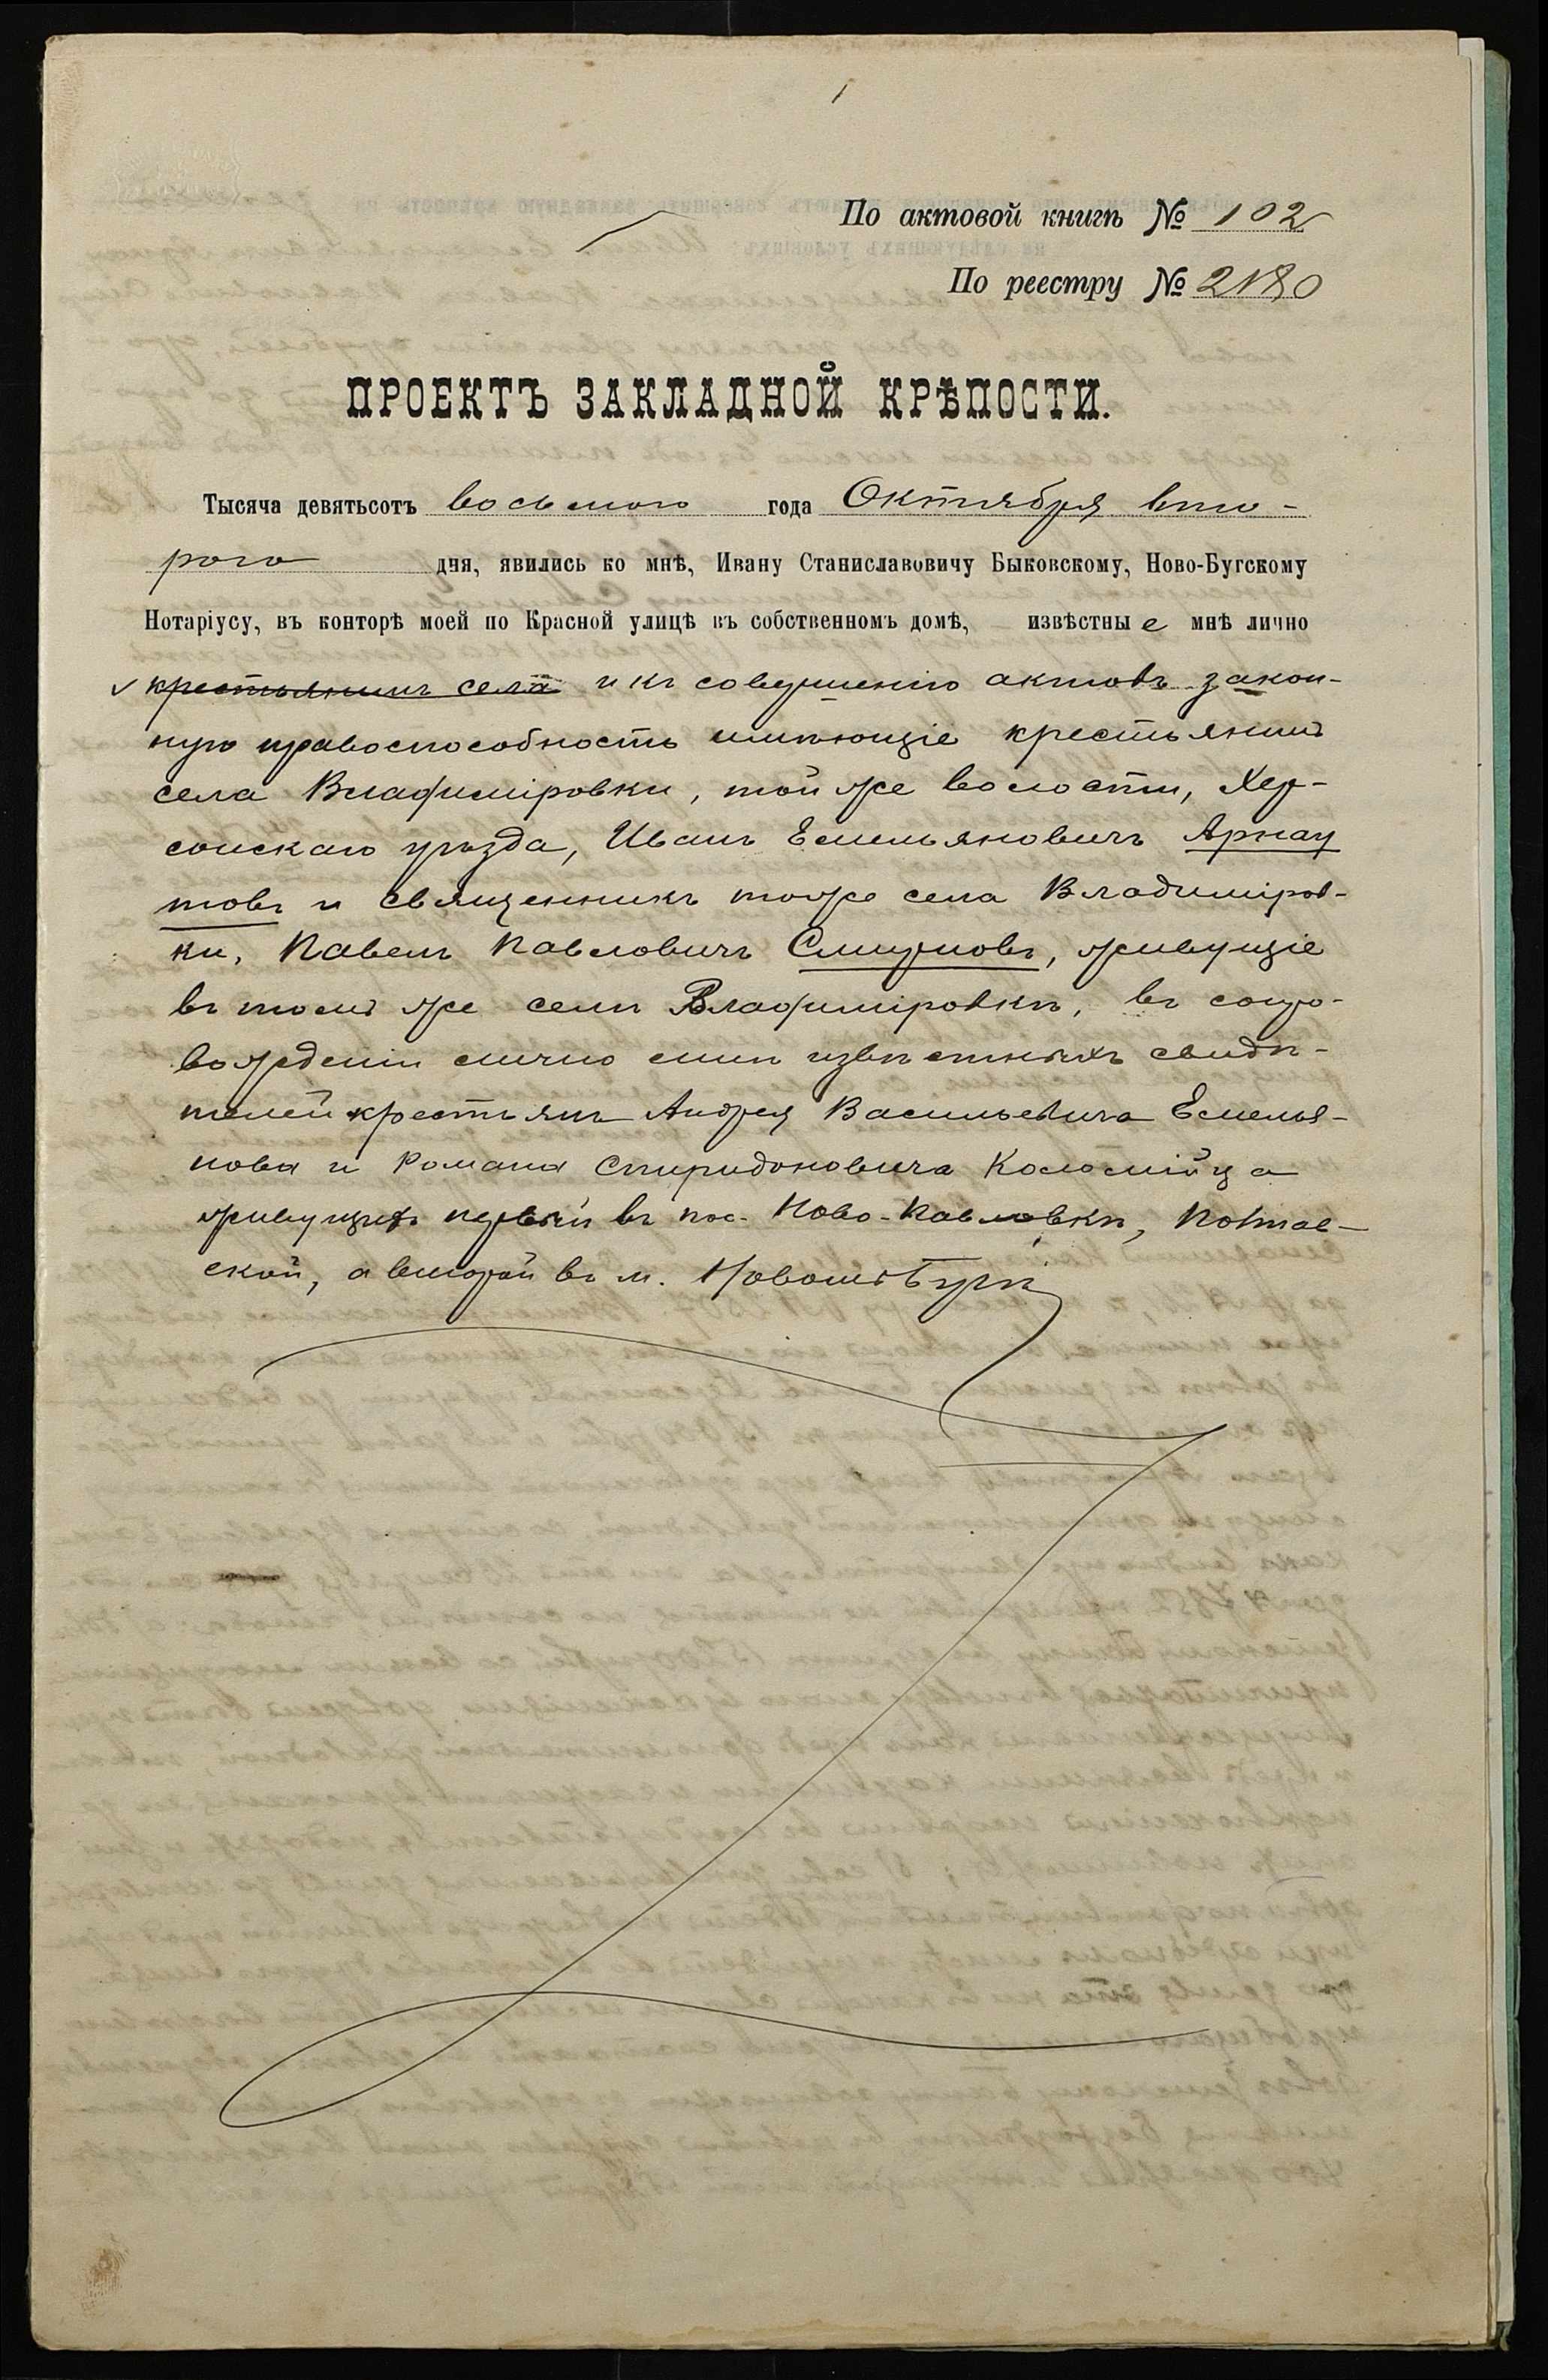 1
По актовой книгѣ № 102
По реестру № 2180
ПРОЕКТЪ ЗАКЛАДНОЙ КРѢПОСТИ.
Тысяча девятьсотъ восьмого года Октября вто-
рого дня, явились ко мнѣ, Ивану Станиславовичу Быковскому, Ново-Бугскому
Нотаріусу, въ конторѣ моей по Красной улицѣ въ собственномъ домѣ, извѣстные мнѣ лично
крестьянинъ села и къ совершенію актовъ закон-
ную правоспособность имѣющіе крестьянинъ
села Владиміровки, той же волости, Хер-
сонскаго уѣзда, Иванъ Емельяновичъ Арнау
товъ и священникъ тоже села Владиміров-
ки, Павелъ Павловичъ Смирновъ, живущіе
въ томъ же селѣ Владиміровкѣ, въ сопро-
вожденіи лично мнѣ извѣстныхъ свидѣ-
телей крестьянъ Андрея Васильевича Емелья-
нова и Романа Спиридоновича Коломійца
живущихъ первый въ пос. Ново-Павловкѣ, Полтав-
ской, а второй въ м. Новомъ Бугѣ